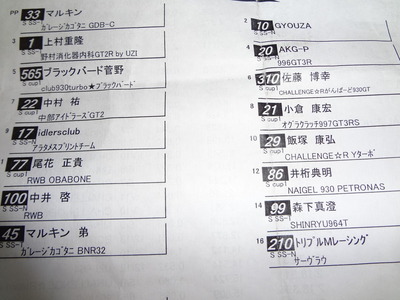 PP 33 マルキン
S SS-
ガレージカゴタニ GDB-C
3 1 上村重隆
S SS-N
野村消化器内科GT2R by UZI
5 565 ブラックバード菅野
S cup1
club930turbo★ブラックバード
7 22 中村 祐
S SS-N
中部アイドラーズGT2
9 17 idlersclub
S SS-N
アラタメスプリントチーム
77 尾花 正貴
S cup1
RWB OBABONE
100 中井 啓
S SS-N
RWB
45 マルキン 弟
S SS-T
ガレージカゴタニ BNR32
2 10 GYOUZA
S SS-N
4 20 AKG-P
S SS-N
996GT3R
6 310 佐藤 博幸
S cup1
CHALLENGE☆Rがんばーど930GT
8 21 小倉 康宏
S cup1
オグラクラッチ997GT3RS
10 29 飯塚 康弘
S SS-N
CHALLENGE☆R Yターボ
12 86 井桁典明
S cup1
NAIGEL 930 PETRONAS
14 99 森下真澄
S SS-T
SHINRYU964T
16 210 トリプルMレーシング
S SS-N
サーヴラウ